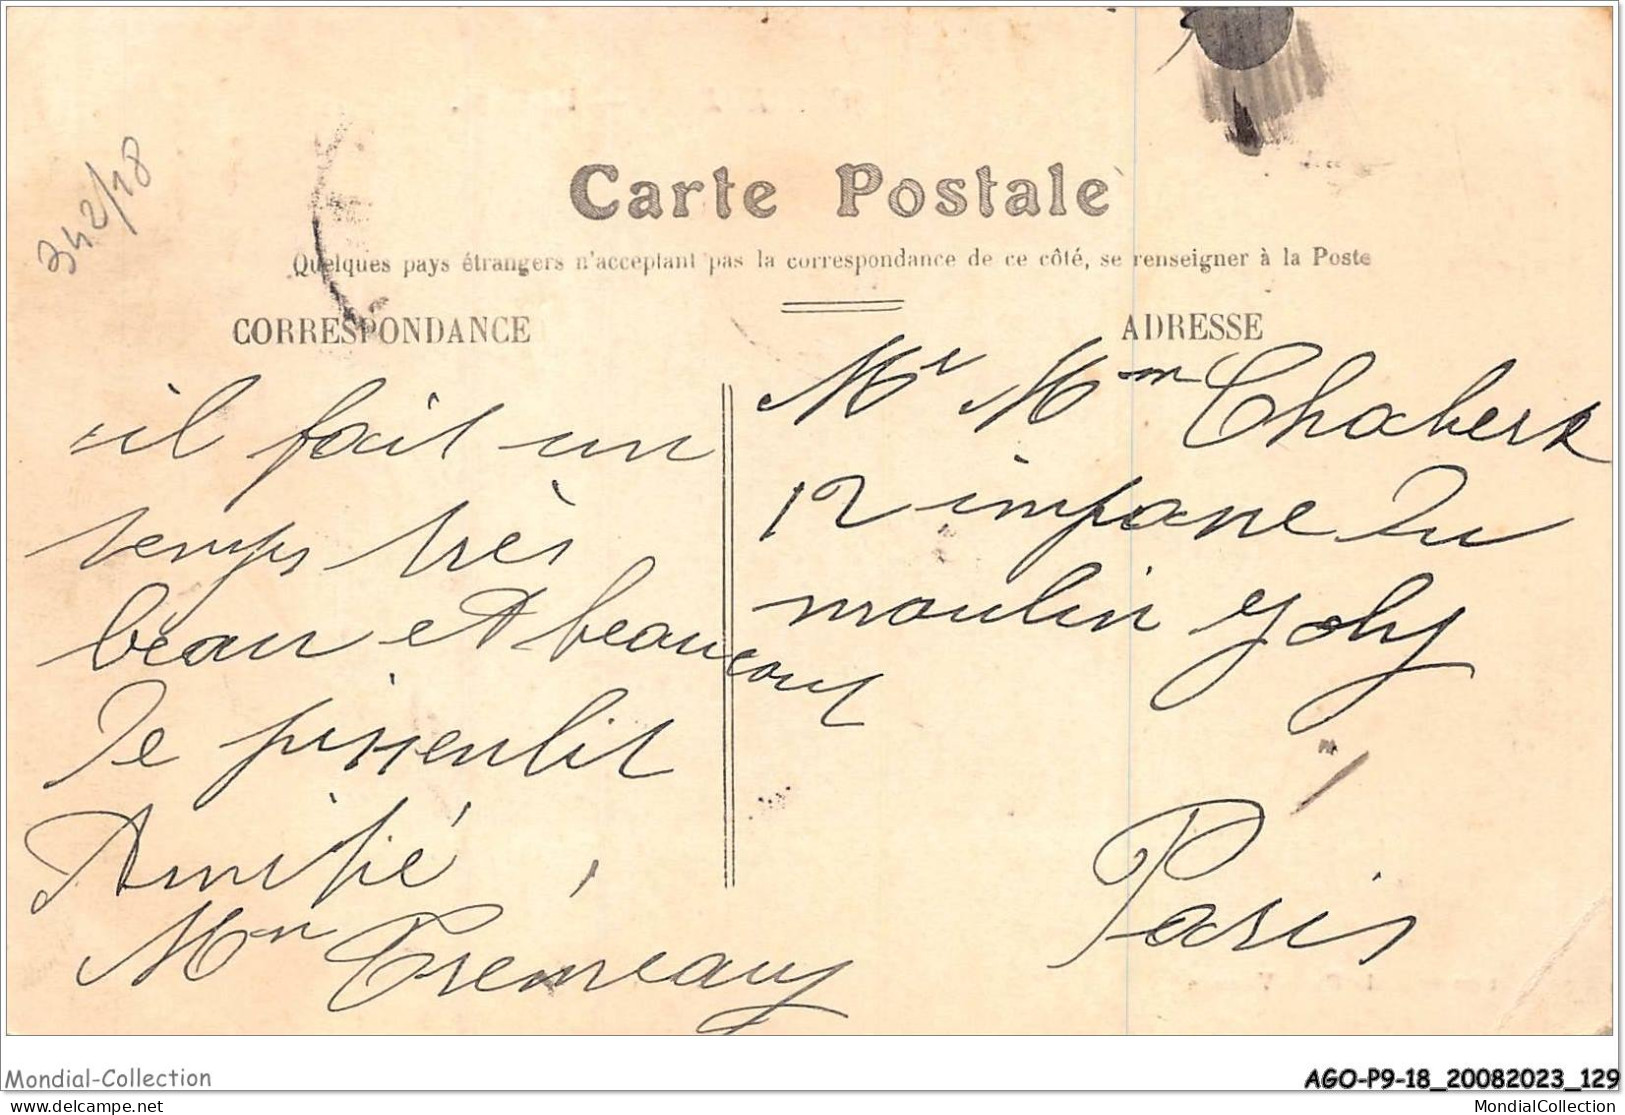 342/18
Carte Postale
Quelques pays étrangers n'acceptant pas la correspondance de ce côté, se renseigner à la Poste
CORRESPONDANCE
il fait un
temps très
beau et beaucoup
de pissenlit
Amitié
Mme
ADRESSE
Mr Mme
12 impase du
moulin Joly
Paris
Mondial-Collection
delcampe.net
AGO-P9-18_20082023_129
MondialCollection